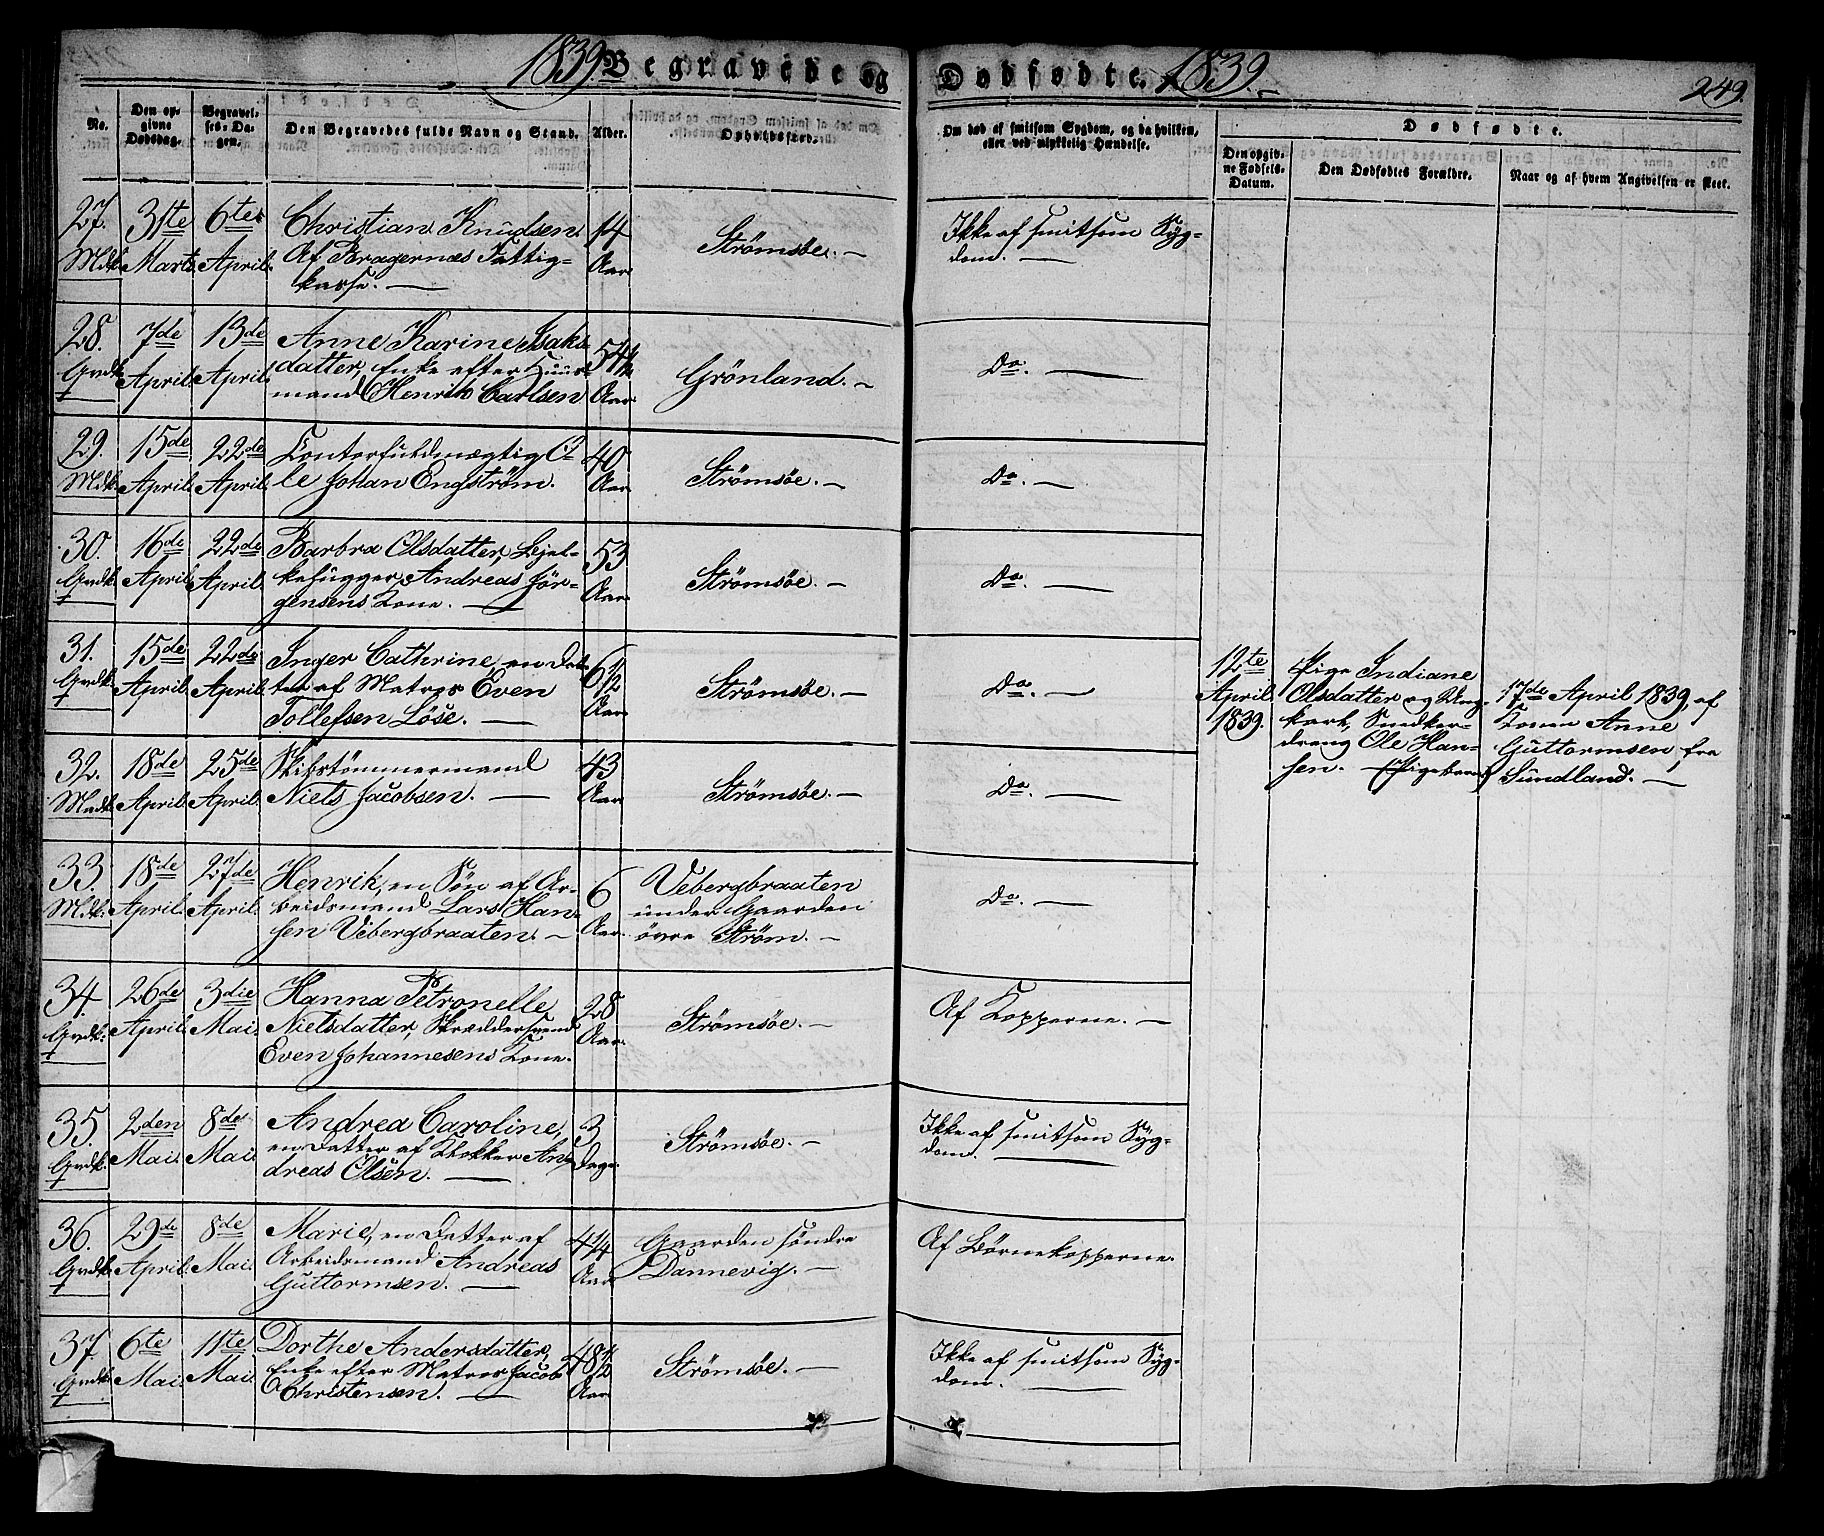 1839. Begravede og Dødfødte. 1839.
249.
No.
Den op-
givne
Dødsdag.
Begravel-
ses-Da-
gen.
Den Begravedes fulde Navn og Stand.
Alder.
Opholdssted.
Om død af smitsom Sygdom, og da hvilken,
eller ved ulykkelig Hændelse.
Dødfødte.
Den opgiv-
ne Fødsels-
Datum.
Den Dødfødtes Forældre.
Naar og af hvem Angivelsen er skeet.
27.
Mdk.
31te
Marts
6te
April.
Christian Knudsen
Af Bragernæs Fattig-
kasse. —
14
Aar
Strömsöe. —
Ikke af smitsom Syg-
dom. —
28.
Qvdk.
7de
April.
13de
April.
Anne Karine Isaks
datter, Enke efter Huus-
mand Henrik Carlsen
54
Aar
Grönland. —
Do. —
29.
Mdk.
15de
April.
22de
April.
Contorfuldmægtig O-
le Johan Engström.
40
Aar
Strömsöe. —
Do. —
30.
Qvdk.
16de
April.
22de
April.
Barbra Olsdatter, Lejel-
kehugger Andreas Jör-
gensens Kone. —
53
Aar
Strömsöe. —
Do. —
31.
Qvdk.
15de
April.
22de
April.
Inger Cathrine, en Dat-
ter af Matros Even
Tollefsen Löse. —
6 1/2
Aar
Strömsöe. —
Do. —
12te
April
1839.
Pige Indiane
Olsdatter og Ung-
karl, Snedker-
dreng Ole Han-
sen. — (Pigebarn)
17de April 1839, af
Konen Anne
Guttormsen, fra
Sundland. —
32.
Mdk.
18de
April.
25de
April.
Skibstömmermand
Niels Jacobsen. —
43
Aar
Strömsöe. —
Do. —
33.
Mdk.
18de
April.
27de
April.
Henrik, en Sön af Ar-
beidsmand Lars Han-
sen Vebergbraaten. —
6
Aar.
Vebergbraaten
under Gaarden
övre Ström. —
Do. —
34.
Qvdk.
26de
April.
3die
Mai.
Hanna Petronelle
Nielsdatter, Skræddersvend
Even Johannesens Kone.
28
Aar.
Strömsöe. —
Af Kopperne. —
35.
Qvdk.
2den
Mai.
8de
Mai.
Andrea Caroline,
en Datter af Klokker An-
dreas Olsen. —
3
Dage
Strömsöe. —
Ikke af smitsom Syg-
dom. —
36.
Qvdk.
29de
April.
8de
Mai.
Marie, en Datter af
Arbeidsmand Andreas
Guttormsen. —
4 1/4
Aar
Gaarden söndre
Dannevig. —
Af Börnekopperne.
37.
Qvdk.
6te
Mai.
11te
Mai.
Dorthe Andersdatter,
Enke efter Matros Jacob
Christensen. —
48 1/2
Aar
Strömsöe. —
Ikke af smitsom Syg-
dom. —